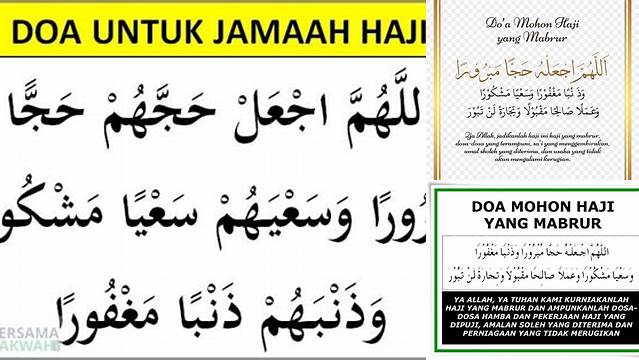 DOA UNTUK JAMAAH HAJI
اللَّهُمَّ اجْعَلْ حَجَّهُمْ حَجًّا
رُورًا وَسَعْيَهُمْ سَعْيًا مَشْكُو
وَذَنْبَهُمْ ذَنْبًا مَغْفُورًا
ERSAMA
AKWAH
Do'a Mohon Haji
yang Mabrur
اَللّٰهُمَّ اجْعَلْهُ حَجًّا مَبْرُوْرًا
وَذَنْبًا مَغْفُوْرًا وَسَعْيًا مَشْكُوْرًا
وَعَمَلًا صَالِحًا مَقْبُوْلًا وَتِجَارَةً لَنْ تَبُوْرَ
Ya Allah, jadikanlah haji ini haji yang mabrur,
dosa-dosa yang terampuni, sa'i yang menggembirakan,
amal sholeh yang diterima, dan usaha yang tidak
akan mengalami kerugian.
DOA MOHON HAJI
YANG MABRUR
اللَّهُمَّ اجْعَلْهُ حَجًّا مَبْرُورًا وَذَنْبًا مَغْفُورًا
وَسَعْيًا مَشْكُورًا وَعَمَلًا صَالِحًا مَقْبُولًا وَتِجَارَةً لَنْ تَبُورَ
YA ALLAH, YA TUHAN KAMI KURNIAKANLAH
HAJI YANG MABRUR DAN AMPUNKANLAH DOSA-
DOSA HAMBA DAN PEKERJAAN HAJI YANG
DIPUJI, AMALAN SOLEH YANG DITERIMA DAN
PERNIAGAAN YANG TIDAK MERUGIKAN